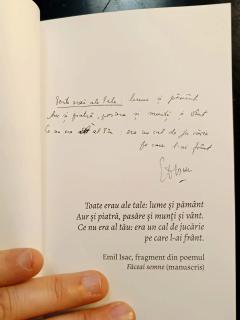 Toate erau ale tale: lume și pământ
Aur și piatră, pasăre și munți și vânt
Ce nu era al tău: era un cal de jucărie
pe care l-ai frânt
Toate erau ale tale: lume și pământ
Aur și piatră, pasăre și munți și vânt.
Ce nu era al tău: era un cal de jucărie
pe care l-ai frânt.
Emil Isac, fragment din poemul
Făceai semne (manuscris)